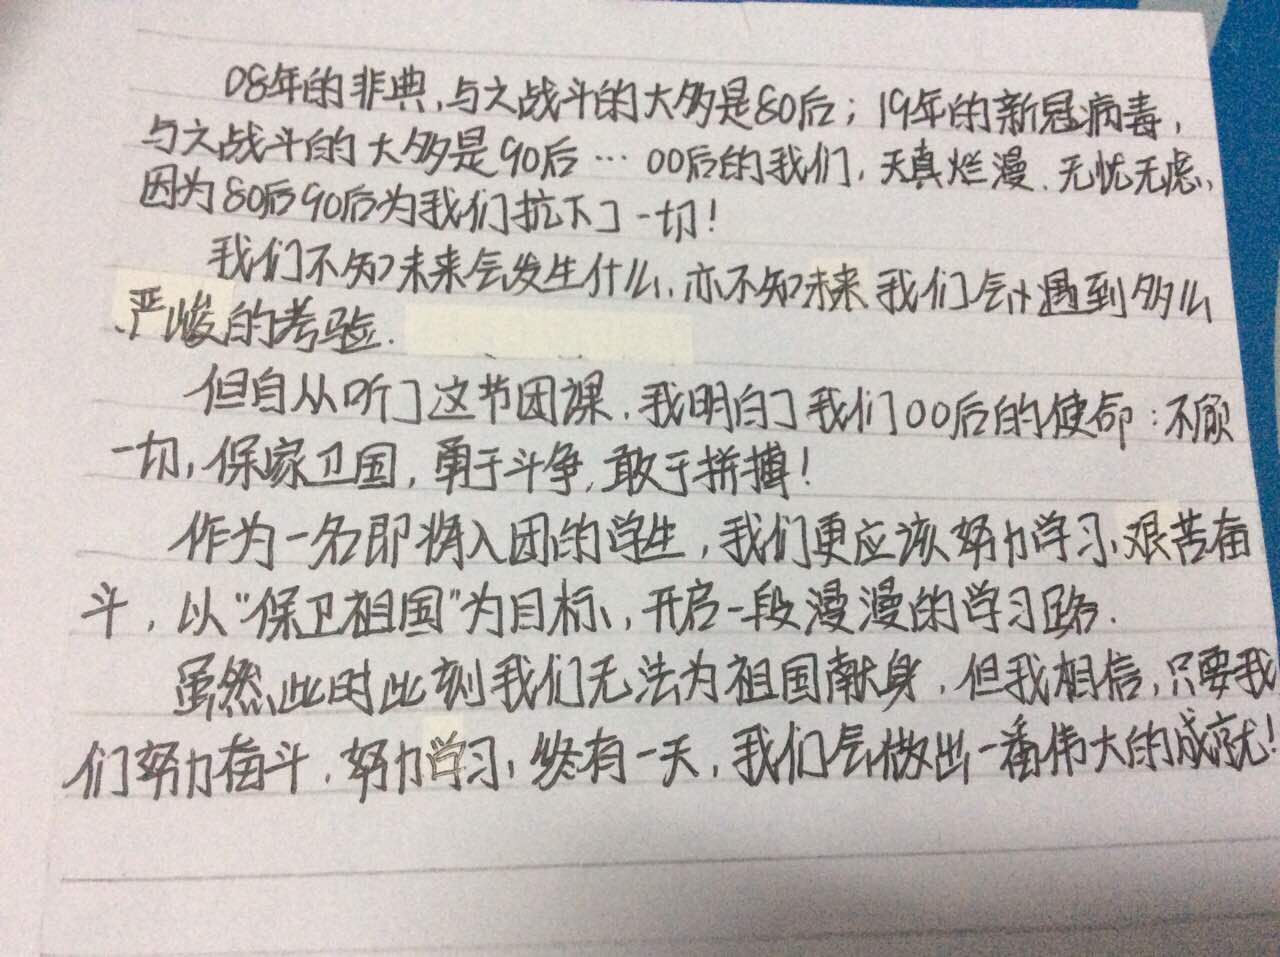 08年的非典,与之战斗的大多是80后；19年的新冠病毒,
与之战斗的大多是90后…00后的我们,天真烂漫、无忧无虑,
因为80后90后为我们抗下了一切!
我们不知未来会发生什么,亦不知未来我们会遇到多么
严峻的考验.
但自从听了这节团课,我明白了我们00后的使命:不顾
一切,保家卫国,勇于斗争,敢于拼搏!
作为一名即将入团的学生,我们更应该努力学习,艰苦奋
斗,以"保卫祖国"为目标,开启一段漫漫的学习路.
虽然此时此刻我们无法为祖国献身,但我相信,只要我
们努力奋斗,努力学习,终有一天,我们会做出一番伟大的成就!